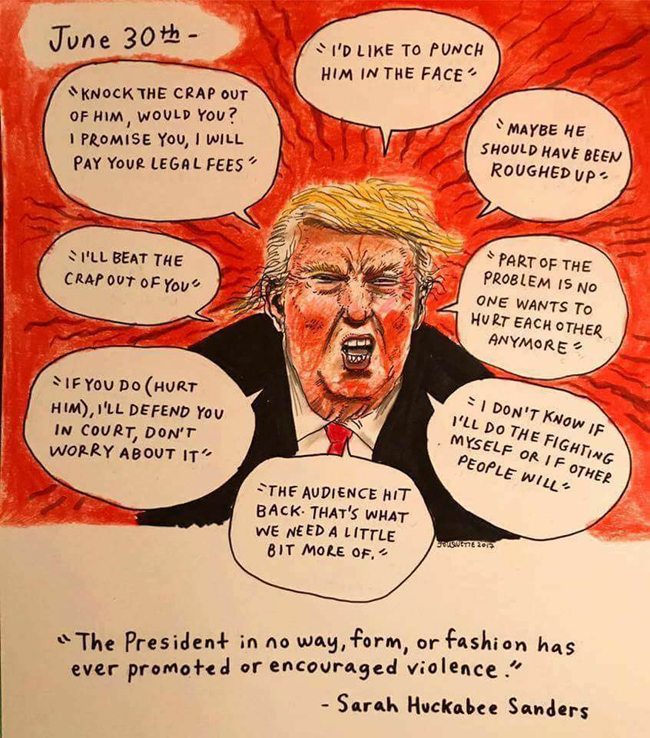 June 30th -
"I'D LIKE TO PUNCH
HIM IN THE FACE"
"KNOCK THE CRAP OUT
OF HIM, WOULD YOU?
I PROMISE YOU, I WILL
PAY YOUR LEGAL FEES"
"MAYBE HE
SHOULD HAVE BEEN
ROUGHED UP"
"I'LL BEAT THE
CRAP OUT OF YOU"
"PART OF THE
PROBLEM IS NO
ONE WANTS TO
HURT EACH OTHER
ANYMORE"
"IF YOU DO (HURT
HIM), I'LL DEFEND YOU
IN COURT, DON'T
WORRY ABOUT IT"
"I DON'T KNOW IF
I'LL DO THE FIGHTING
MYSELF OR IF OTHER
PEOPLE WILL"
"THE AUDIENCE HIT
BACK. THAT'S WHAT
WE NEED A LITTLE
BIT MORE OF."
2017
"The President in no way, form, or fashion has
ever promoted or encouraged violence."
- Sarah Huckabee Sanders